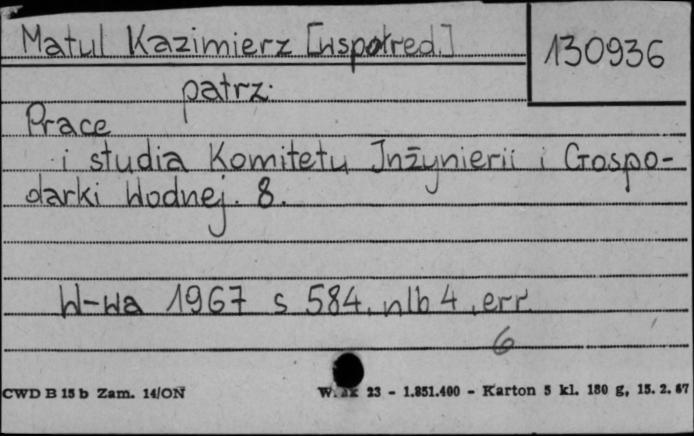 Matul Kazimierz [współred.]
130936
patrz:
Prace
i studia Komitetu Inżynierii i Gospo-
darki Wodnej. 8.
W-wa 1967 s 584, nlb 4, err.
6
CWD B 15 b Zam. 14/ON
23 - 1.851.400 - Karton 5 kl. 180 g, 15. 2. 67